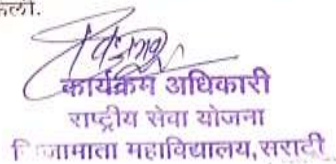 केली.
कार्यक्रम अधिकारी
राष्ट्रीय सेवा योजना
जिजामाता महाविद्यालय, सराटी